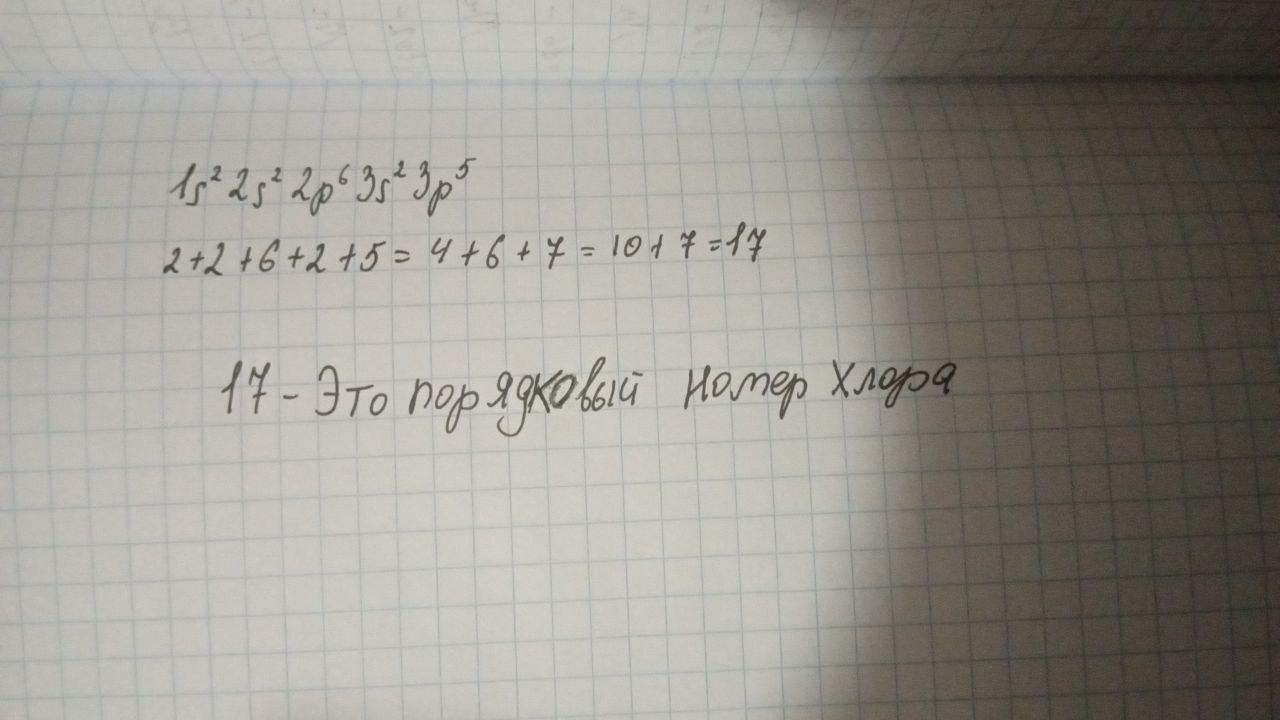 1s² 2s² 2p⁶ 3s² 3p⁵
2+2+6+2+5 = 4+6+7 = 10+7 = 17
17 - Это порядковый номер хлора